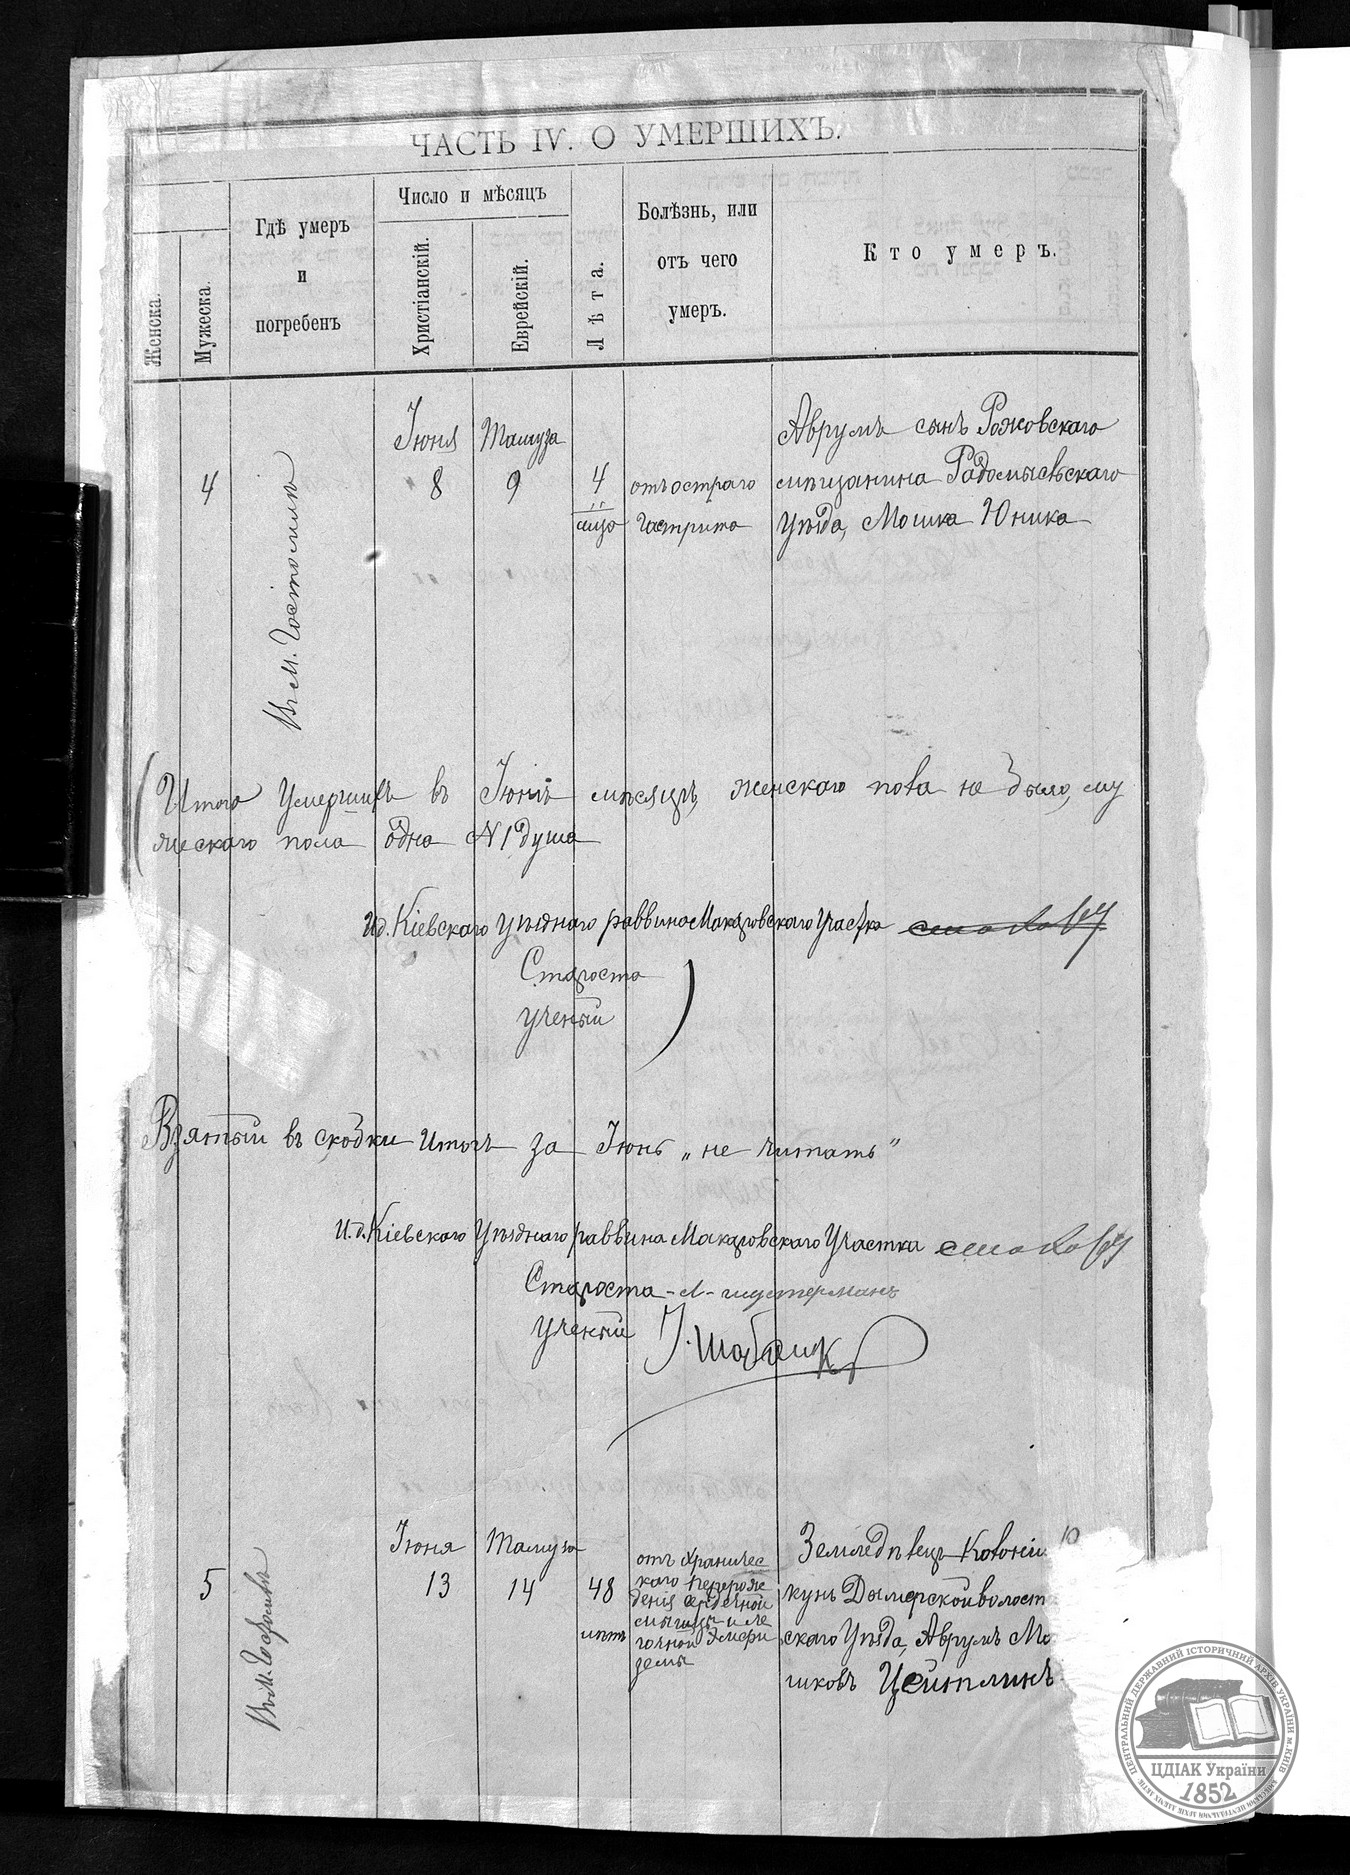 ЧАСТЬ IV. О УМЕРШИХЪ.
Женска.
Мужеска.
Гдѣ умеръ
и
погребенъ
Число и мѣсяцъ
Христіанскій.
Еврейскій.
Лѣта.
Болѣзнь, или
отъ чего
умеръ.
Кто умеръ.
4
Въ М.
Іюня
8
Тамуза
9
4
отъ остраго
Гастрита
Аврумъ сынъ Рожовскаго
мѣщанина Радомысльскаго
Уѣзда, Мошка Юника
Итого Умершихъ въ Іюнѣ мѣсяцѣ, женскаго пола не было, му
жескаго пола одна №1 душа
И.д. Кіевскаго Уѣзднаго раввина Макаровскаго Участка
Староста
Ученый
Взятый въ скобки Итогъ за Іюнь „не читать"
И.д. Кіевскаго Уѣзднаго раввина Макаровскаго Участка
Староста
Ученый
5
Въ М.
Іюня
13
Тамуза
14
48
лѣтъ
отъ Хроничес
каго перерож
денія сердечной
мышцы и ле
гочной Эмфи
земы
Земледѣлецъ
кунь Дымерской волост
скаго Уѣзда, Аврумъ Мо
шковъ Цейтлинъ
ЦЕНТРАЛЬНИЙ ДЕРЖАВНИЙ ІСТОРИЧНИЙ АРХІВ УКРАЇНИ М. КИЇВ
ЦДІАК України
1852